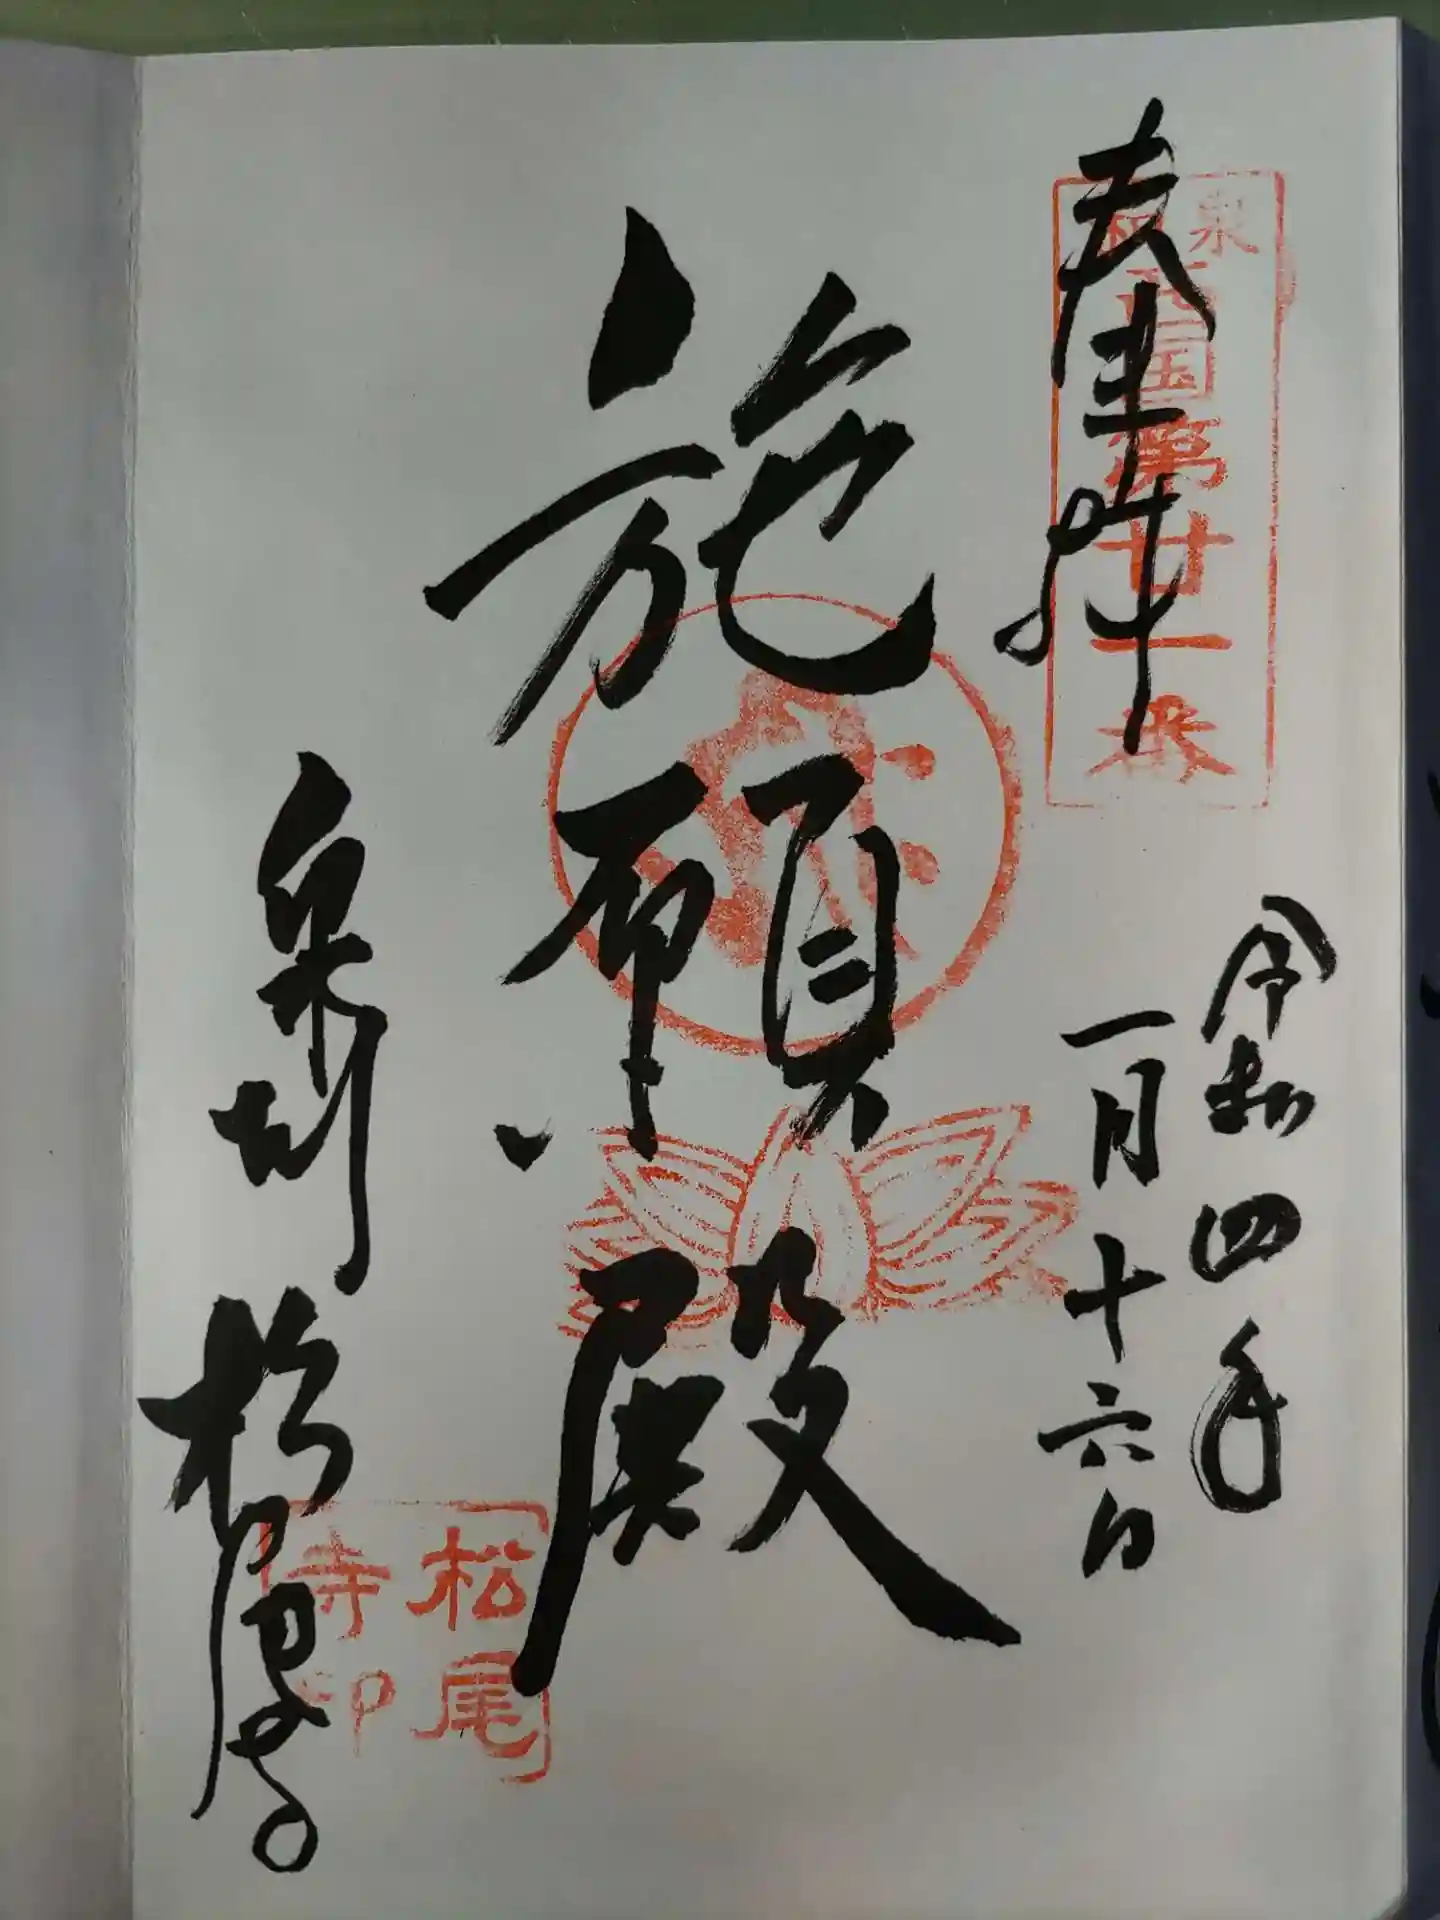 奉拝
和泉西国第廿一番
令和四年
一月十六日
施願殿
泉州 松尾寺
松尾
寺印